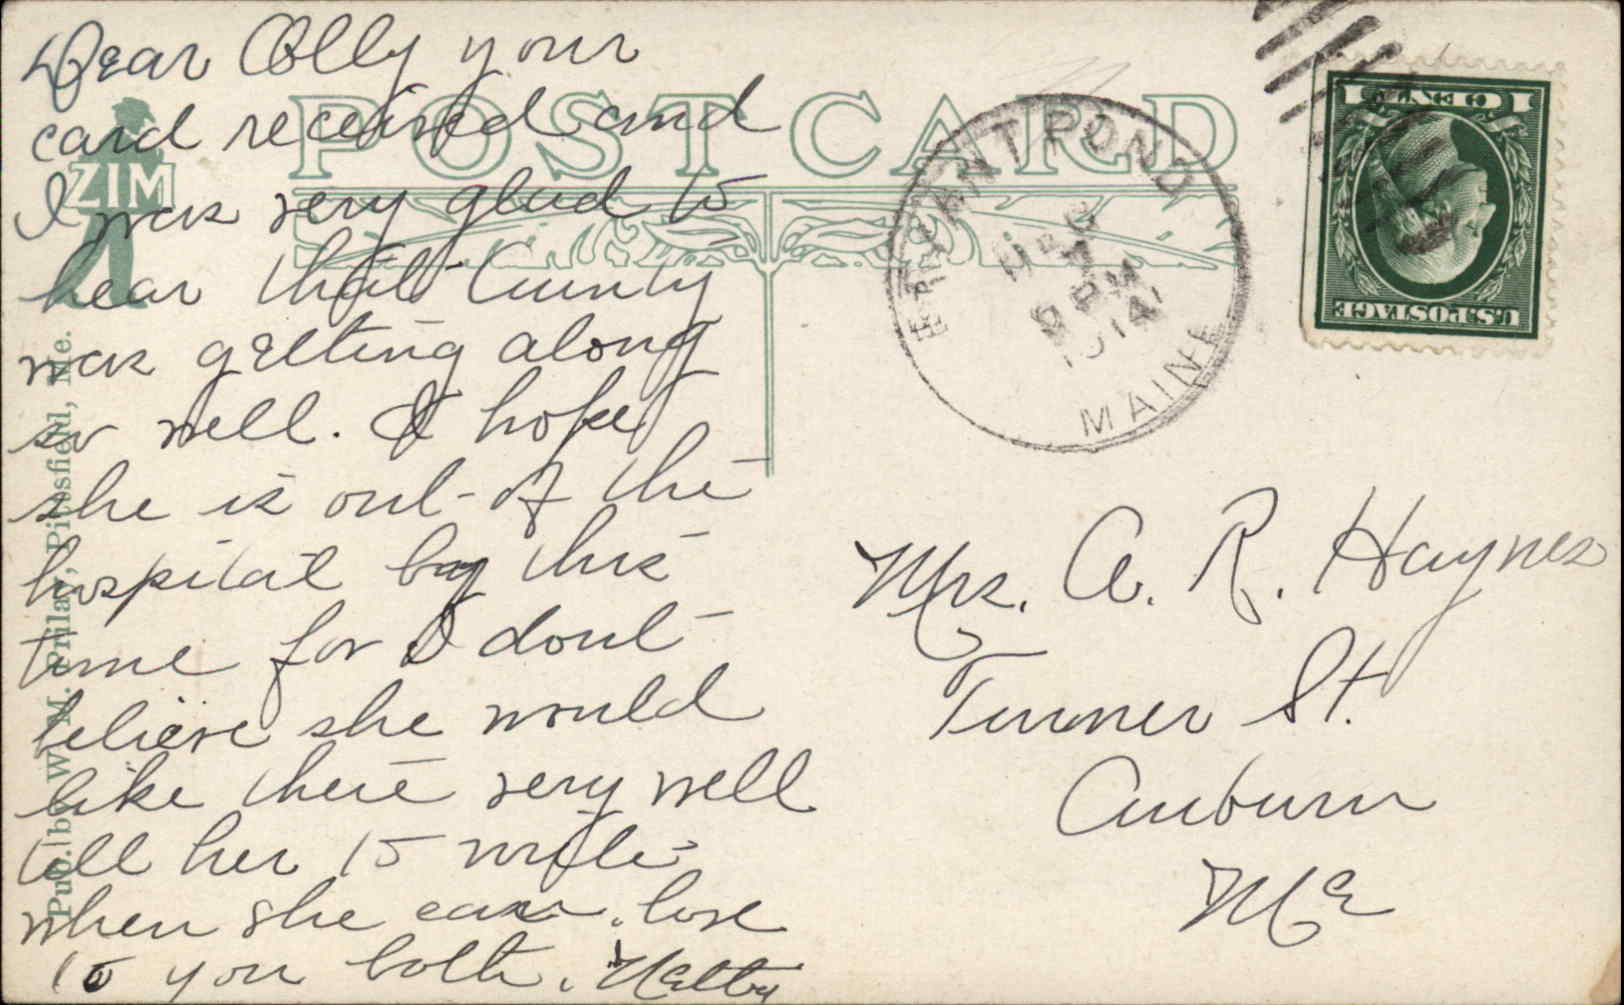 Dear Olly your
card received and
I was very glad to
hear that
was getting along
so well. I hope
she is out of the
hospital by this
time for I dont
believe she would
like there very well
tell her to write
when she can. love
to you both.
POST CARD
ZIM
Pub. by W. M. Prilay, Pittsfield, Me.
BRYANT POND
DEC
7
8 PM
1914
MAINE
1 ONE CENT 1
U.S. POSTAGE
Mrs. A. R. Haynes
Turner St.
Auburn
Me